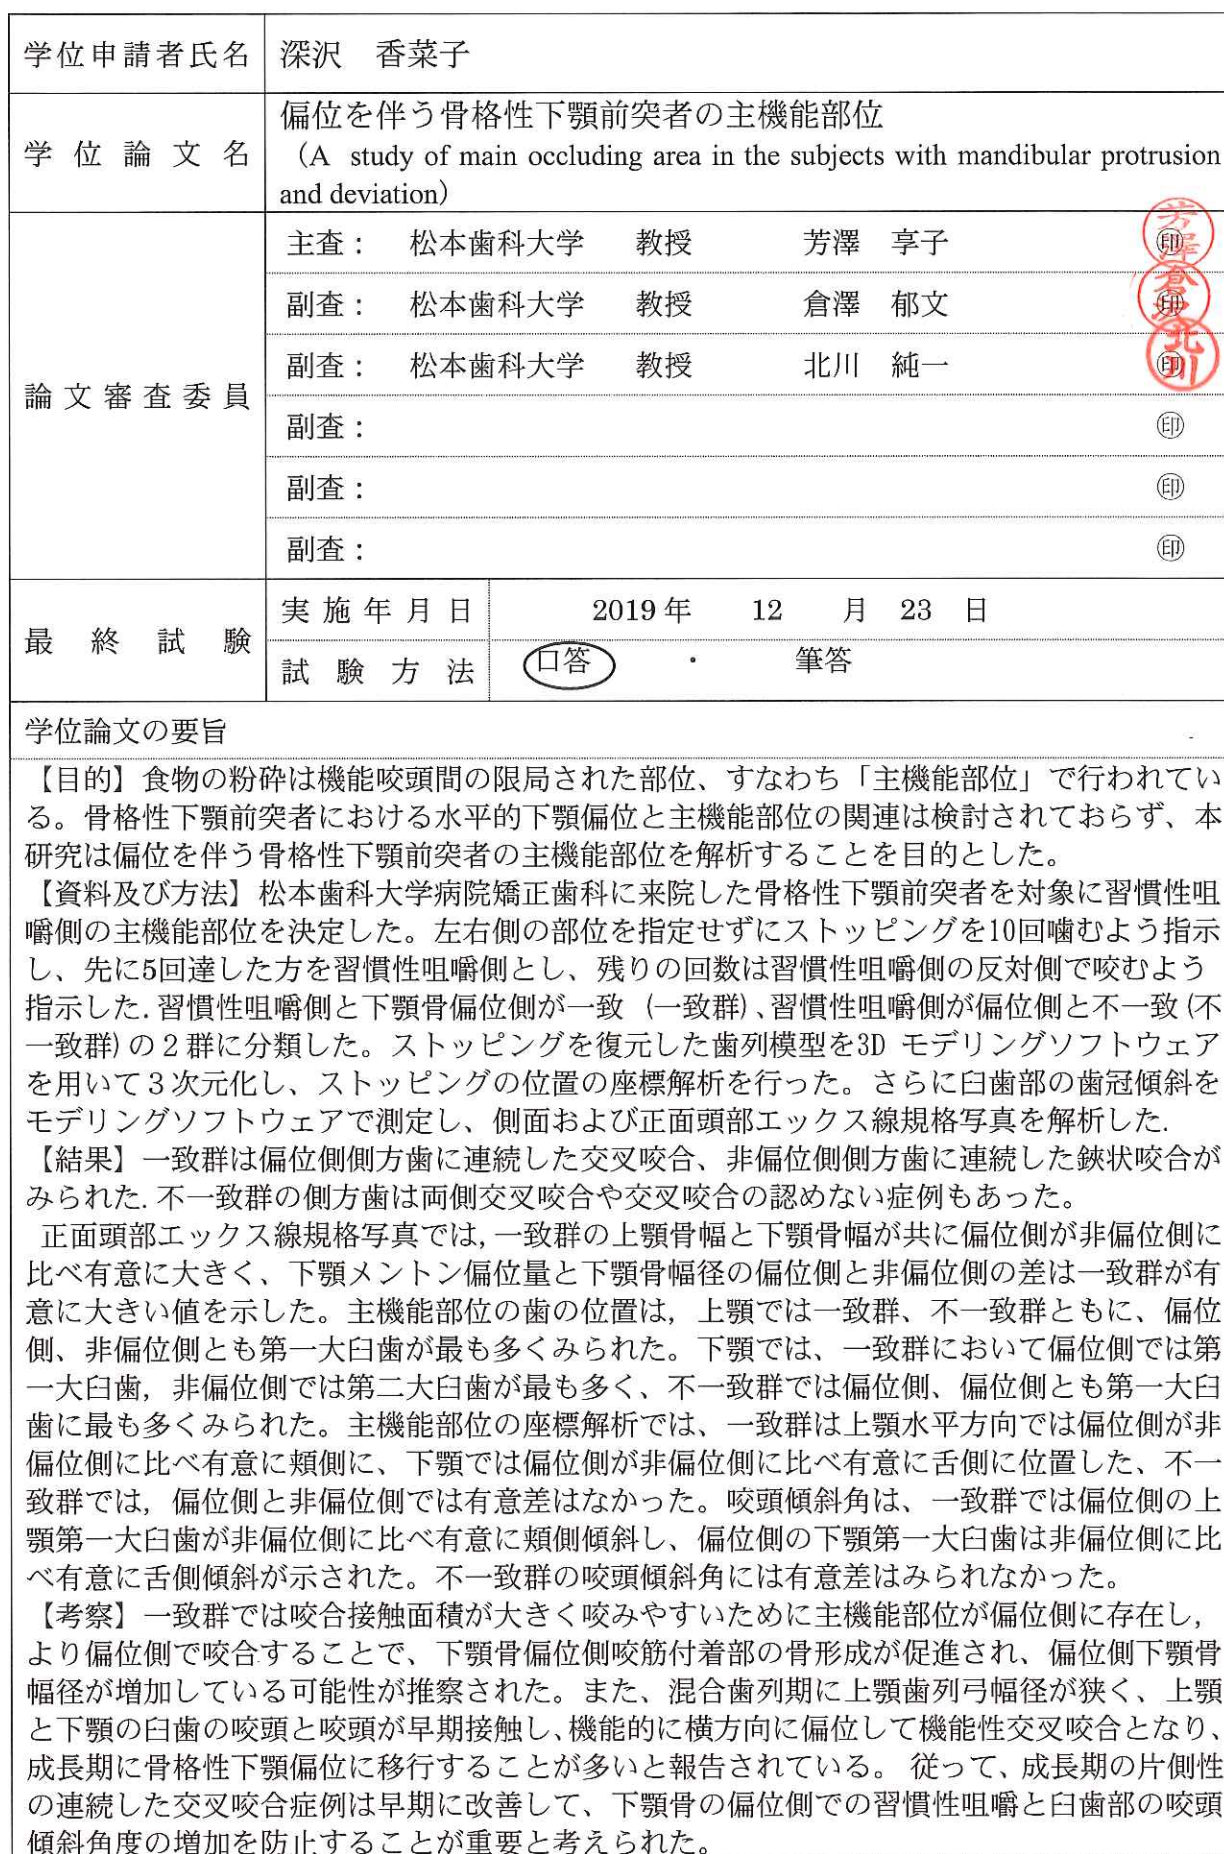 学位申請者氏名 深沢 香菜子
学位論文名 偏位を伴う骨格性下顎前突者の主機能部位
(A study of main occluding area in the subjects with mandibular protrusion
and deviation)
論文審査委員
主査： 松本歯科大学 教授 芳澤 享子 ㊞ 芳澤
副査： 松本歯科大学 教授 倉澤 郁文 ㊞ 倉澤
副査： 松本歯科大学 教授 北川 純一 ㊞ 北川
副査： ㊞
副査： ㊞
副査： ㊞
最終試験
実施年月日 2019年 12 月 23 日
試験方法 口答 ・ 筆答
学位論文の要旨
【目的】食物の粉砕は機能咬頭間の限局された部位、すなわち「主機能部位」で行われてい
る。骨格性下顎前突者における水平的下顎偏位と主機能部位の関連は検討されておらず、本
研究は偏位を伴う骨格性下顎前突者の主機能部位を解析することを目的とした。
【資料及び方法】松本歯科大学病院矯正歯科に来院した骨格性下顎前突者を対象に習慣性咀
嚼側の主機能部位を決定した。左右側の部位を指定せずにストッピングを10回噛むよう指示
し、先に5回達した方を習慣性咀嚼側とし、残りの回数は習慣性咀嚼側の反対側で咬むよう
指示した.習慣性咀嚼側と下顎骨偏位側が一致 (一致群)､習慣性咀嚼側が偏位側と不一致(不
一致群)の２群に分類した。ストッピングを復元した歯列模型を3D モデリングソフトウェア
を用いて３次元化し、ストッピングの位置の座標解析を行った。さらに臼歯部の歯冠傾斜を
モデリングソフトウェアで測定し、側面および正面頭部エックス線規格写真を解析した.
【結果】一致群は偏位側側方歯に連続した交叉咬合、非偏位側側方歯に連続した鋏状咬合が
みられた.不一致群の側方歯は両側交叉咬合や交叉咬合の認めない症例もあった。
正面頭部エックス線規格写真では,一致群の上顎骨幅と下顎骨幅が共に偏位側が非偏位側に
比べ有意に大きく、下顎メントン偏位量と下顎骨幅径の偏位側と非偏位側の差は一致群が有
意に大きい値を示した。主機能部位の歯の位置は，上顎では一致群、不一致群ともに、偏位
側、非偏位側とも第一大臼歯が最も多くみられた。下顎では、一致群において偏位側では第
一大臼歯，非偏位側では第二大臼歯が最も多く、不一致群では偏位側、偏位側とも第一大臼
歯に最も多くみられた。主機能部位の座標解析では、一致群は上顎水平方向では偏位側が非
偏位側に比べ有意に頬側に、下顎では偏位側が非偏位側に比べ有意に舌側に位置した、不一
致群では，偏位側と非偏位側では有意差はなかった。咬頭傾斜角は、一致群では偏位側の上
顎第一大臼歯が非偏位側に比べ有意に頬側傾斜し、偏位側の下顎第一大臼歯は非偏位側に比
べ有意に舌側傾斜が示された。不一致群の咬頭傾斜角には有意差はみられなかった。
【考察】一致群では咬合接触面積が大きく咬みやすいために主機能部位が偏位側に存在し，
より偏位側で咬合することで、下顎骨偏位側咬筋付着部の骨形成が促進され、偏位側下顎骨
幅径が増加している可能性が推察された。また、混合歯列期に上顎歯列弓幅径が狭く、上顎
と下顎の臼歯の咬頭と咬頭が早期接触し､機能的に横方向に偏位して機能性交叉咬合となり､
成長期に骨格性下顎偏位に移行することが多いと報告されている。 従って､成長期の片側性
の連続した交叉咬合症例は早期に改善して、下顎骨の偏位側での習慣性咀嚼と臼歯部の咬頭
傾斜角度の増加を防止することが重要と考えられた。